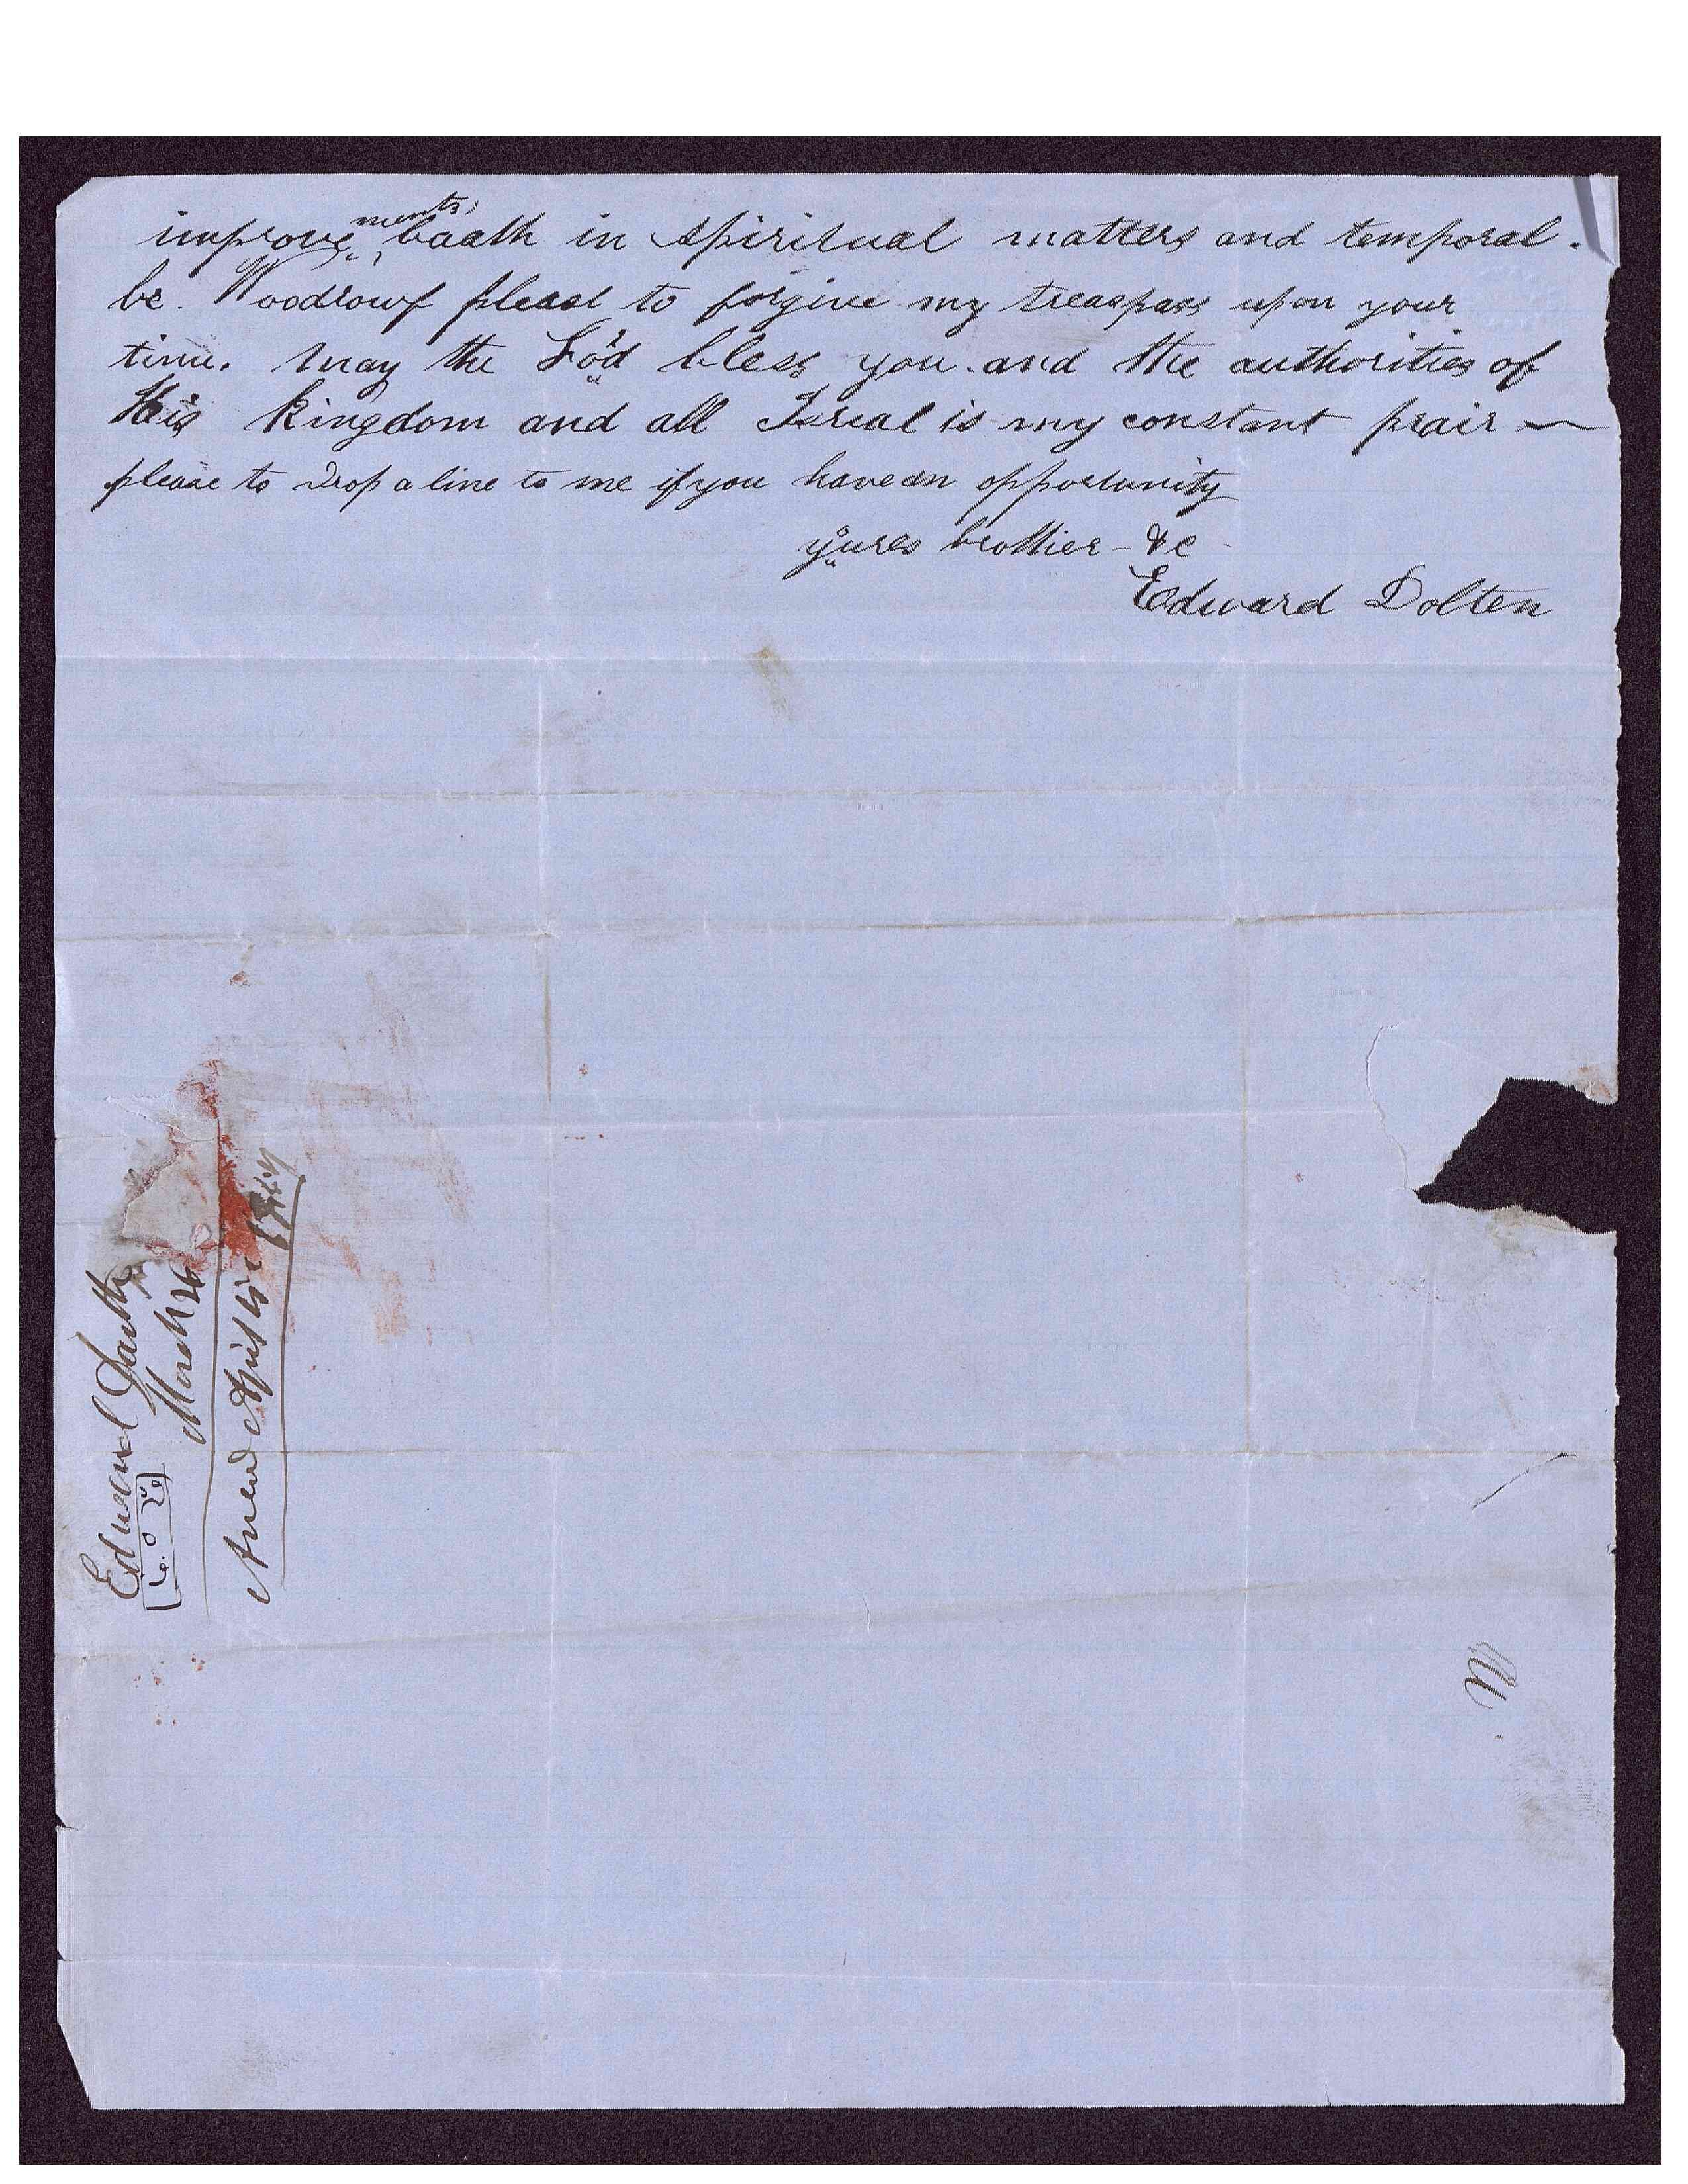 improve ments, baath in spiritual matters and temporal.
br. Woodrowf pleast to forgive my treaspass upon your
time. may the Lord bless you. and the authorities of
His kingdom and all Isreal is my constant prair —
please to drop a line to me if you have an opportunity
youres brother - &c -
Edward Dolten
Edward
March 26
April